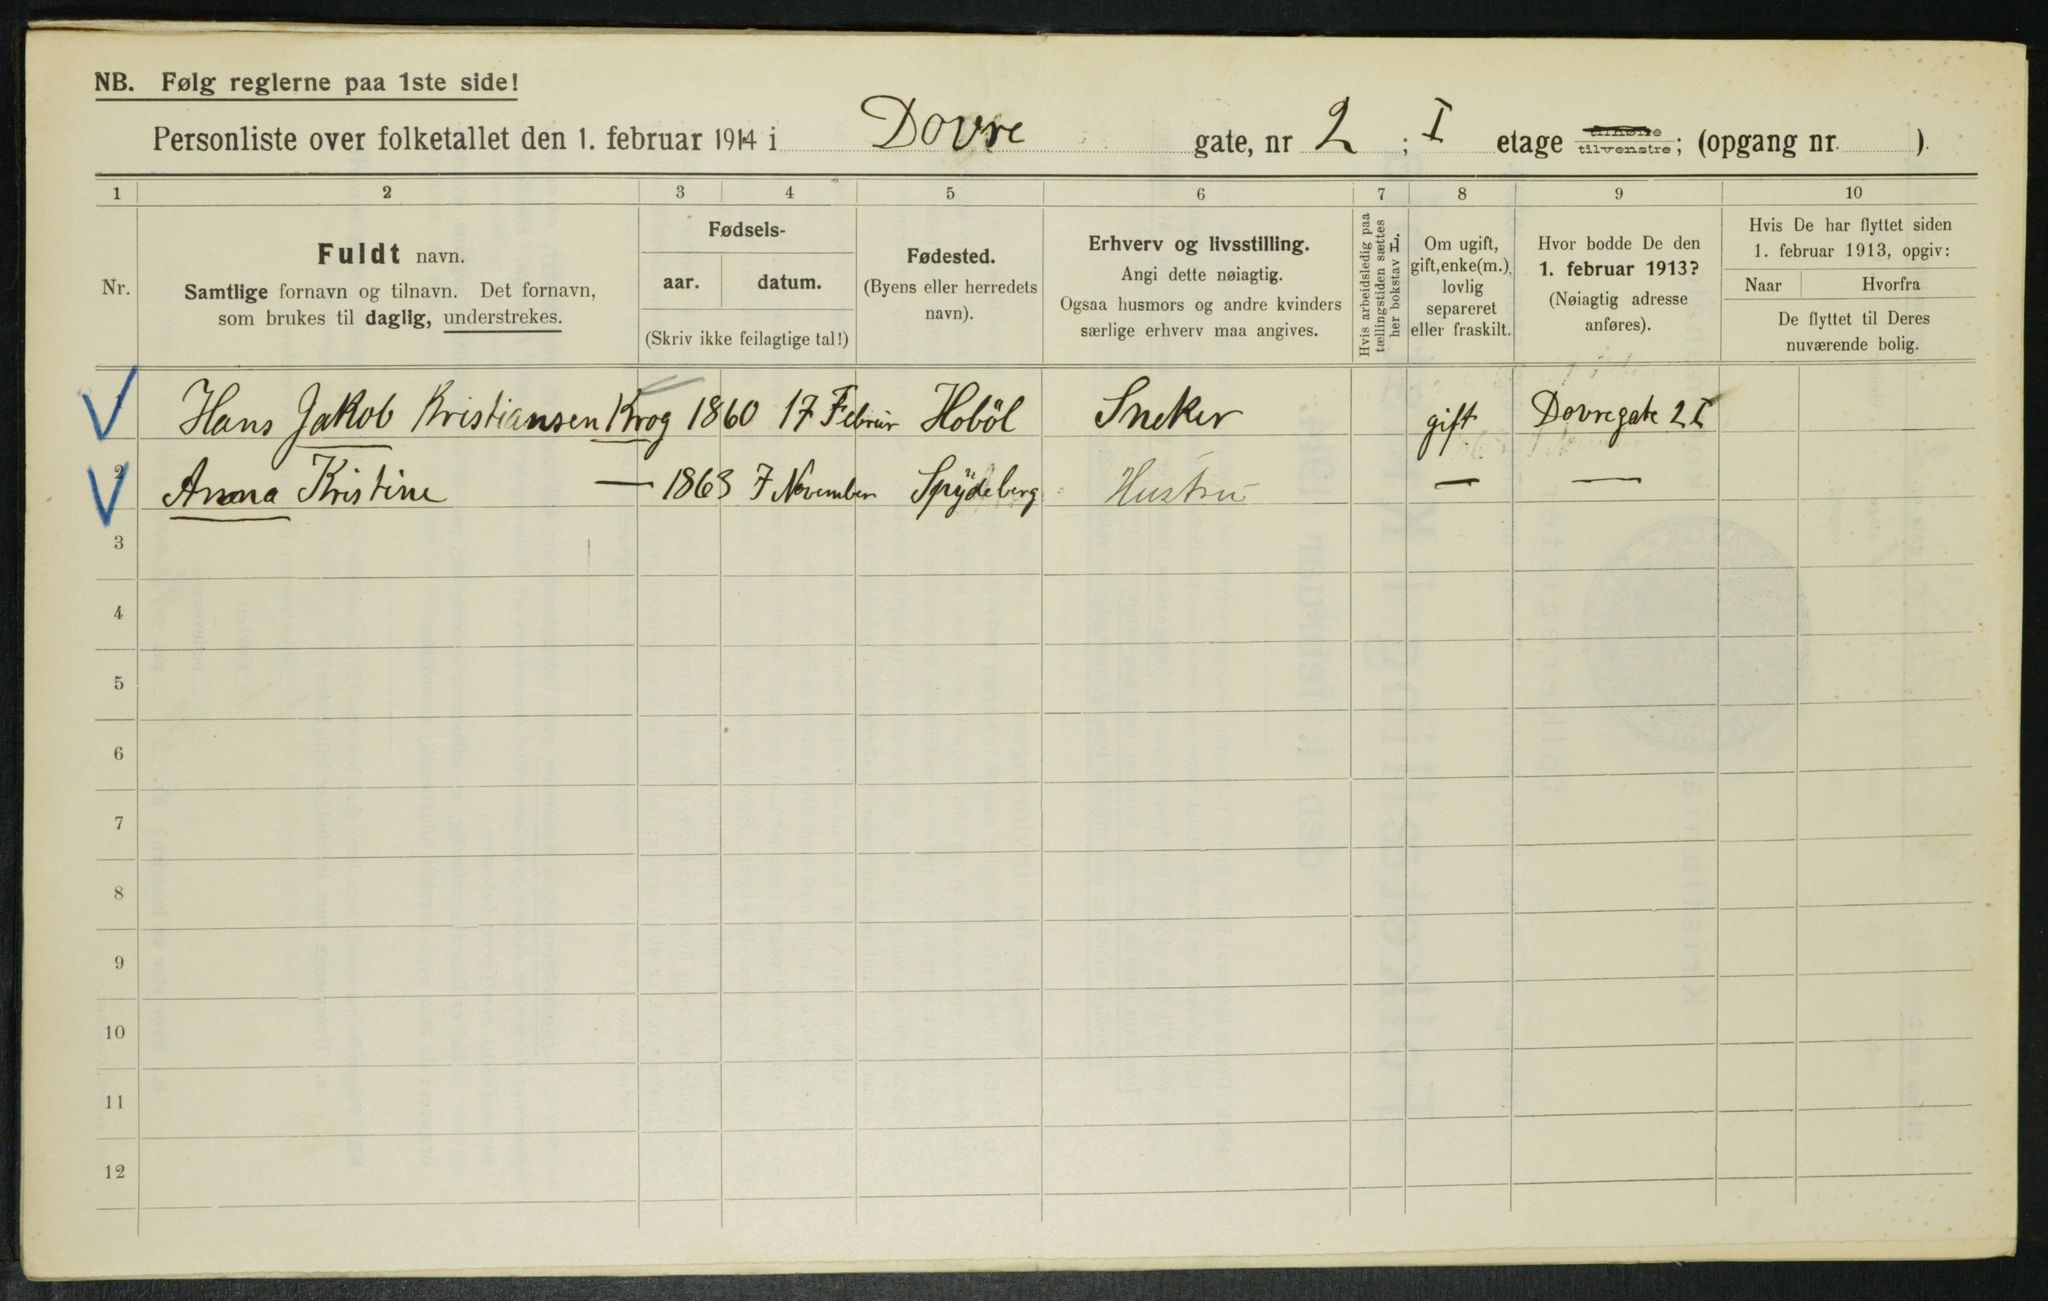 NB. Følg reglerne paa 1ste side!
Personliste over folketallet den 1. februar 1914 i Dovre gate, nr 2 ; I etage tilhøire tilvenstre; (opgang nr. ).
1 2 3 4 5 6 7 8 9 10
Nr.
Fuldt navn.
Samtlige fornavn og tilnavn. Det fornavn,
som brukes til daglig, understrekes.
Fødsels-
aar. datum.
(Skriv ikke feilagtige tal!)
Fødested.
(Byens eller herredets
navn).
Erhverv og livsstilling.
Angi dette nøiagtig.
Ogsaa husmors og andre kvinders
særlige erhverv maa angives.
Hvis arbeidsledig paa
tællingstiden sættes
her bokstav L.
Om ugift,
gift, enke(m.),
lovlig
separeret
eller fraskilt.
Hvor bodde De den
1. februar 1913?
(Nøiagtig adresse
anføres).
Hvis De har flyttet siden
1. februar 1913, opgiv:
Naar Hvorfra
De flyttet til Deres
nuværende bolig.
1 Hans Jakob Kristiansen Krog 1860 17 Februr Hoböl Sneker gift Dovregate 2 I
2 Anna Kristine — 1863 7 November Spÿdeberg Hustru — —
3
4
5
6
7
8
9
10
11
12